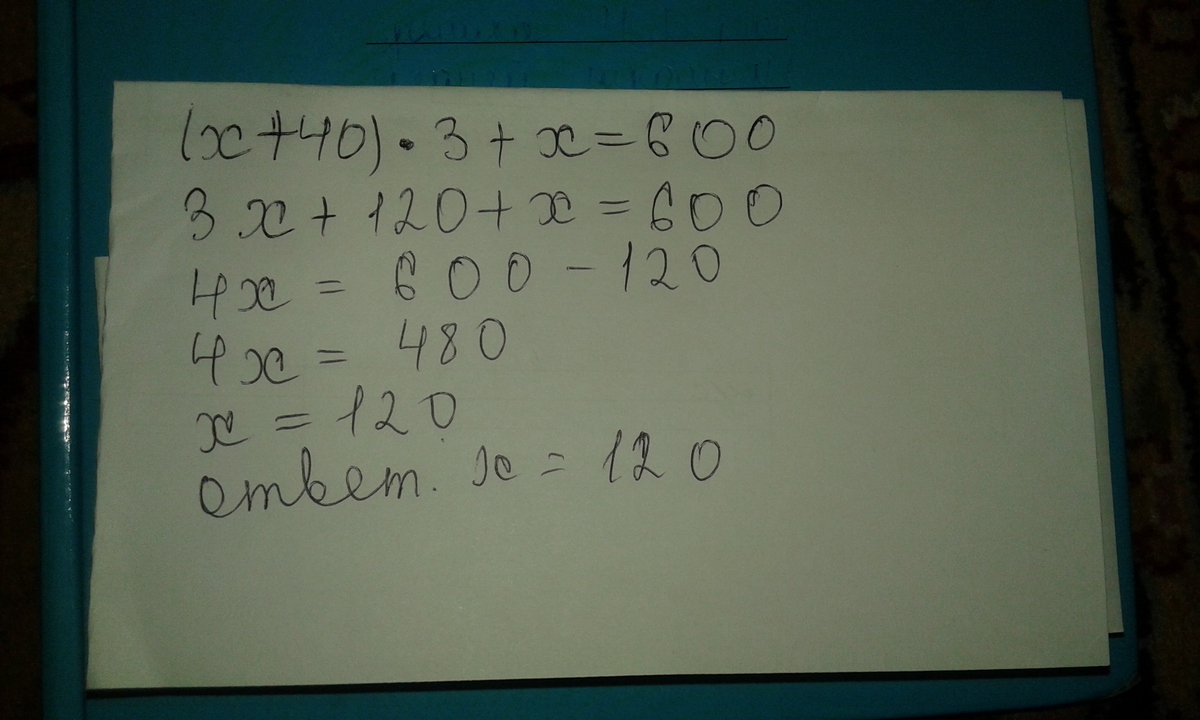 (x+40)·3+x=600
3x+120+x=600
4x=600-120
4x=480
x=120
ответ. x=120